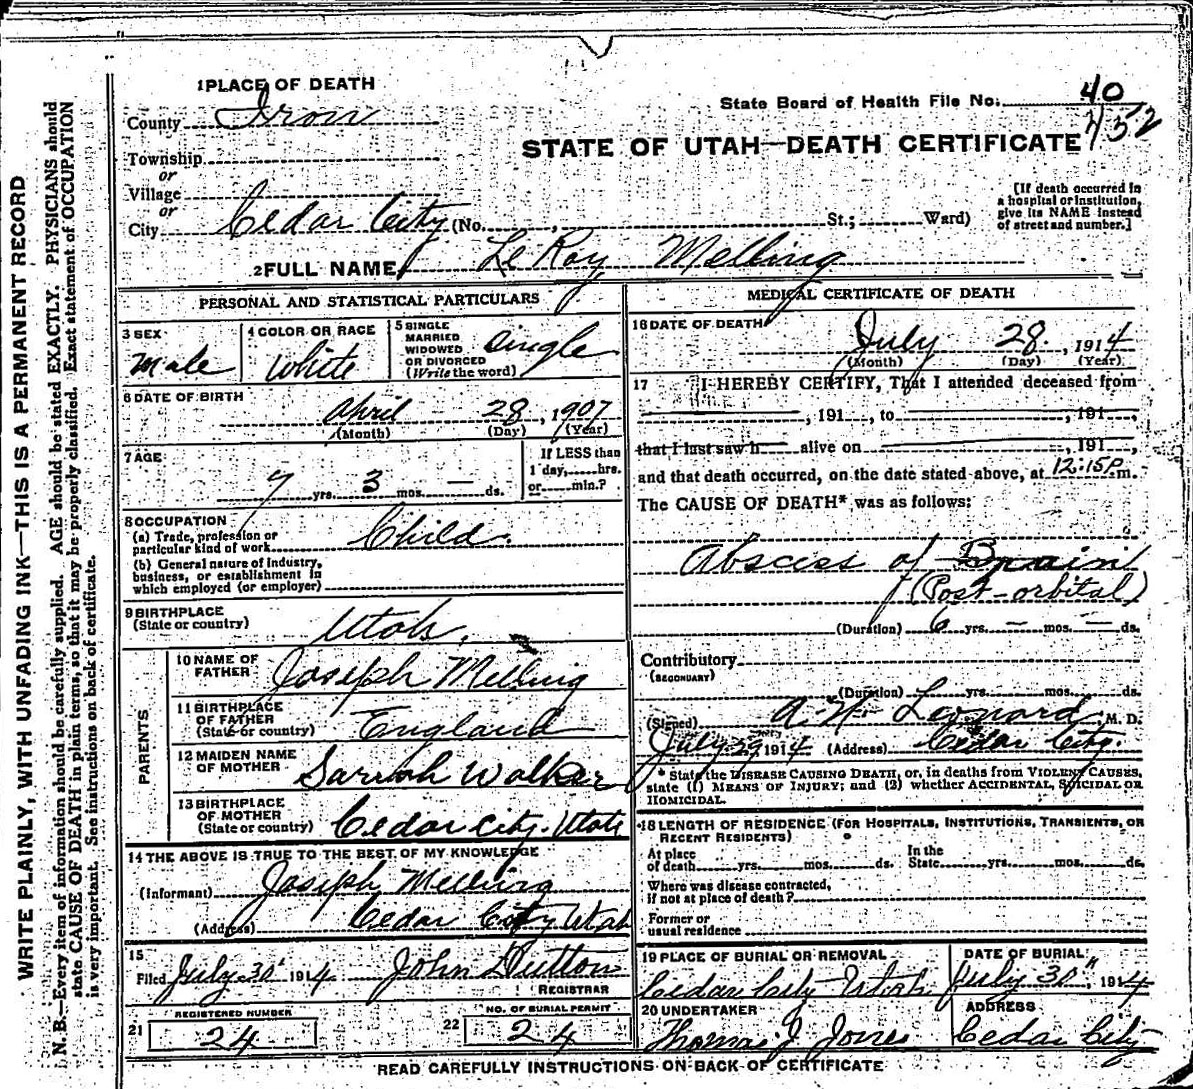 WRITE PLAINLY, WITH UNFADING INK—THIS IS A PERMANENT RECORD
N. B.—Every item of information should be carefully supplied. AGE should be stated EXACTLY. PHYSICIANS should
state CAUSE OF DEATH in plain terms, so that it may be properly classified. Exact statement of OCCUPATION
is very important. See instructions on back of certificate.
1 PLACE OF DEATH
County Iron
Township
or
Village
or
City Cedar City (No. , St.; Ward)
State Board of Health File No. 40
452
STATE OF UTAH—DEATH CERTIFICATE
[If death occurred in
a hospital or institution,
give its NAME instead
of street and number.]
2 FULL NAME Le Roy Melling
PERSONAL AND STATISTICAL PARTICULARS
3 SEX
Male
4 COLOR OR RACE
White
5 SINGLE
MARRIED
WIDOWED
OR DIVORCED
(Write the word)
Single
6 DATE OF BIRTH
April 28, 1907
(Month) (Day) (Year)
7 AGE
7 yrs. 3 mos. — ds.
If LESS than
1 day, hrs.
or min.?
8 OCCUPATION
(a) Trade, profession or
particular kind of work Child.
(b) General nature of industry,
business, or establishment in
which employed (or employer)
9 BIRTHPLACE
(State or country)
Utah.
PARENTS
10 NAME OF
FATHER
Joseph Melling
11 BIRTHPLACE
OF FATHER
(State or country)
England
12 MAIDEN NAME
OF MOTHER
Sarah Walker
13 BIRTHPLACE
OF MOTHER
(State or country)
Cedar City. Utah
14 THE ABOVE IS TRUE TO THE BEST OF MY KNOWLEDGE
(Informant) Joseph Melling
(Address) Cedar City Utah
15
Filed July 30 1914 John Dutton
REGISTRAR
REGISTERED NUMBER
21 24
NO. OF BURIAL PERMIT
22 24
MEDICAL CERTIFICATE OF DEATH
16 DATE OF DEATH
July 28, 1914
(Month) (Day) (Year)
17 I HEREBY CERTIFY, That I attended deceased from
, 191 , to , 191 ,
that I last saw h alive on , 191 ,
and that death occurred, on the date stated above, at 12:15 P. m.
The CAUSE OF DEATH* was as follows:
Abscess of Brain
(Post-orbital)
(Duration) 6 yrs. — mos. — ds.
Contributory
(SECONDARY)
(Duration) yrs. mos. ds.
(Signed) A. N. Leonard, M. D.
July 29 1914 (Address) Cedar City.
* State the DISEASE CAUSING DEATH, or, in deaths from VIOLENT CAUSES,
state (1) MEANS OF INJURY; and (2) whether ACCIDENTAL, SUICIDAL OR
HOMICIDAL.
18 LENGTH OF RESIDENCE (FOR HOSPITALS, INSTITUTIONS, TRANSIENTS, OR
RECENT RESIDENTS)
At place
of death yrs. mos. ds.
In the
State yrs. mos. ds.
Where was disease contracted,
if not at place of death?
Former or
usual residence
19 PLACE OF BURIAL OR REMOVAL
Cedar City Utah
DATE OF BURIAL
July 30", 1914
20 UNDERTAKER
Thomas J Jones
ADDRESS
Cedar City
READ CAREFULLY INSTRUCTIONS ON BACK OF CERTIFICATE